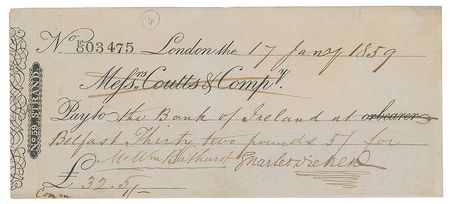 4
No E 03475 London the 17 Jany 1859
Messrs Coutts & Compy.
No 59, STRAND.
Pay to the Bank of Ireland at or bearer
Belfast Thirty two pounds 5/ for
Mr Wm Bathurst Charles Dickens
£ 32.5/-
Comm